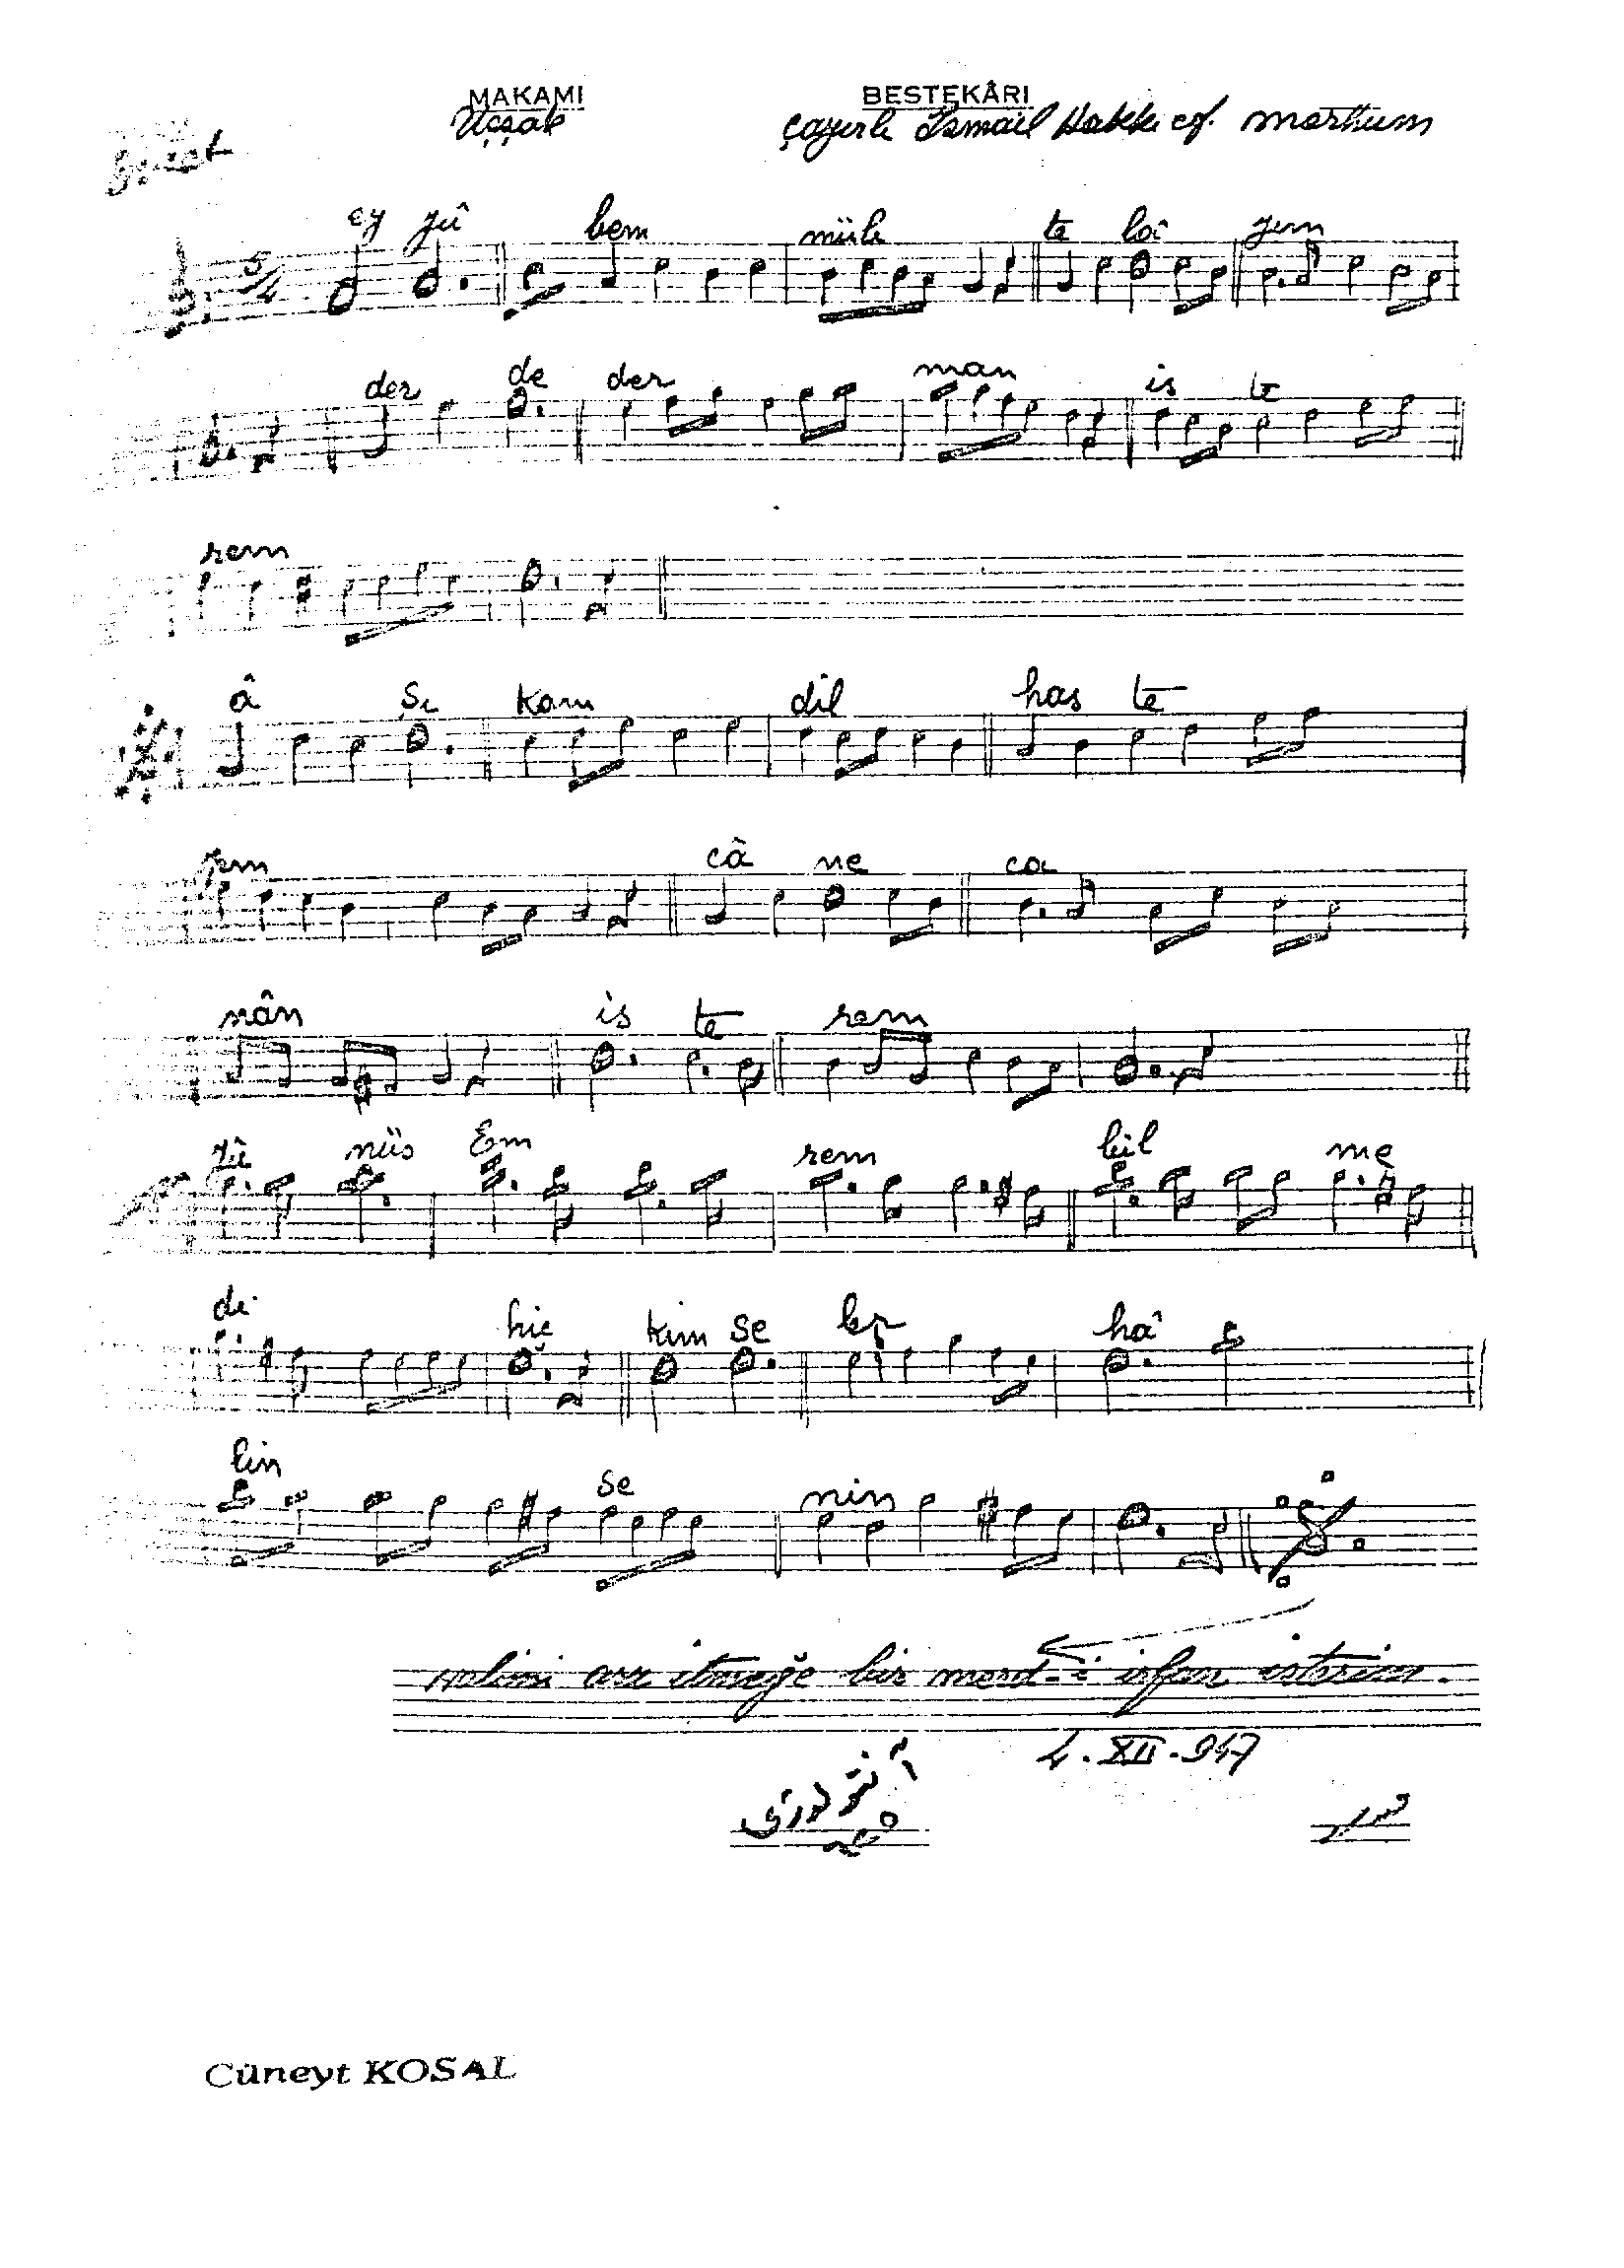 MAKAMI BESTEKÂRI
Uşşak İsmail Hakkı ef. merhum
5/4
ey yû bem müb te lâ yım
der de der man is te
rem
â şı kam dil has te
yem câ ne ca
nân is te rem
Em rem bil me
di hiç kim se ler hâ
lin se nin
Halimi arz itmeğe bir merd-i irfan isterim.
4.XII.947
Cüneyt KOSAL